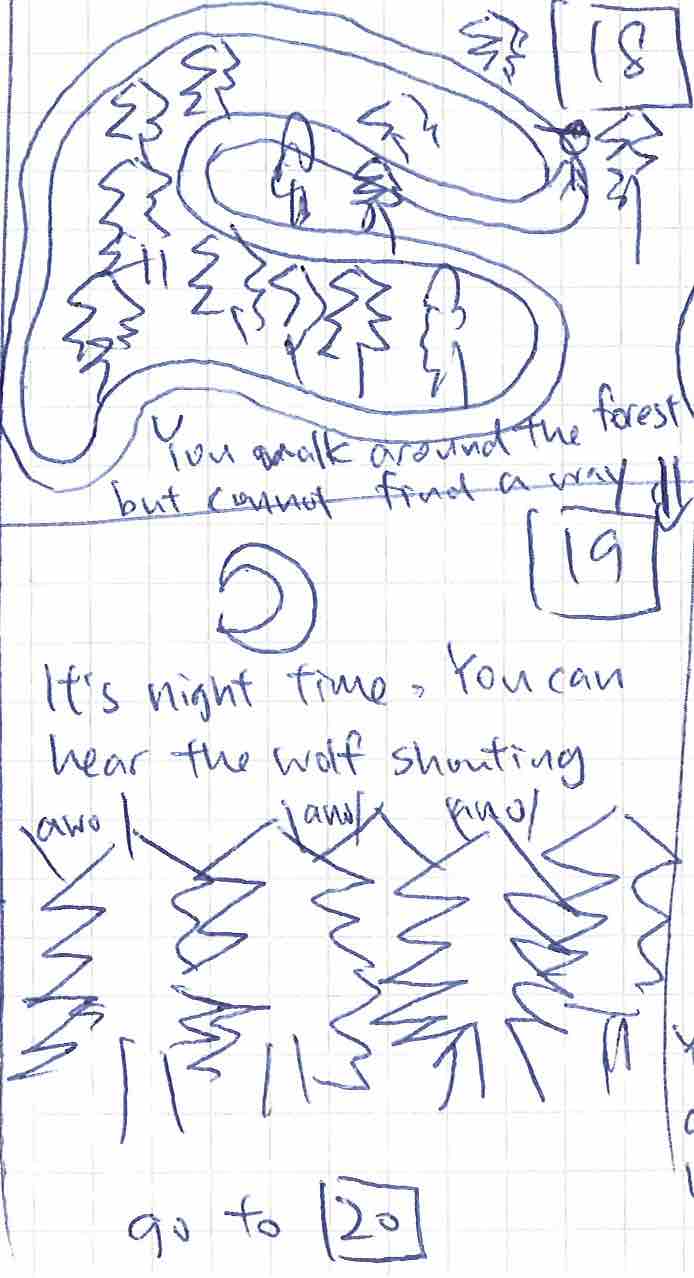 18
You walk around the forest
but cannot find a way
19
It's night time. You can
hear the wolf shouting
awo awo awo
go to 20